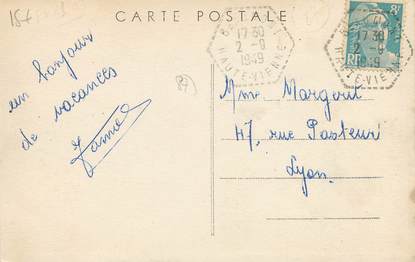 CARTE POSTALE
17-30
2-9
1949
HAUTE-VIENNE
17-30
2-9
1949
HAUTE-VIENNE
8F
RF
un bonjour
de vacances
Mme Margerit
47, rue Pasteur
Lyon.